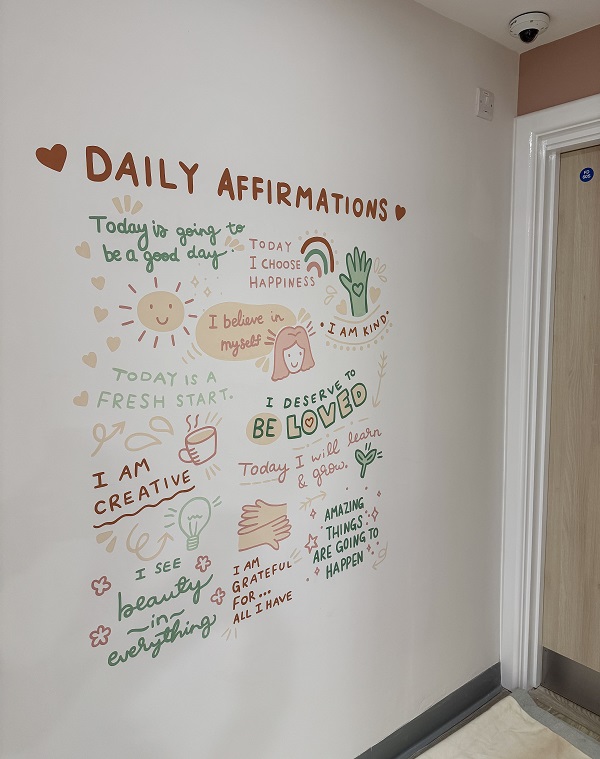 DAILY AFFIRMATIONS
Today is going to
be a good day
TODAY
I CHOOSE
HAPPINESS
I AM KIND
I believe in
myself
TODAY IS A
FRESH START.
I DESERVE TO
BE LOVED
I AM
CREATIVE
Today I will learn
& grow.
I SEE
beauty
in
everything
I AM
GRATEFUL
FOR...
ALL I HAVE
AMAZING
THINGS
ARE GOING TO
HAPPEN